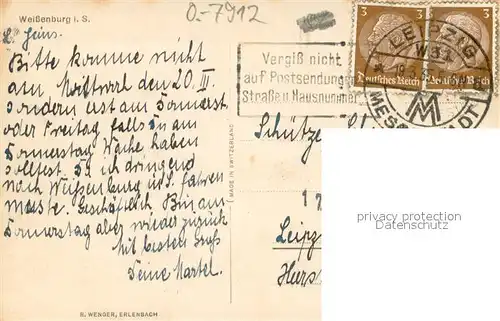 Weißenburg i. S.
O-7912
L. Heins.
Bitte komme nicht
am Mittwoch den 20. III.
sondern erst am Donnerst.
oder Freitag falls Du am
Donnerstag Wache haben
solltest. Da ich dringend
nach Weißenburg i/S. fahren
musste. Geschäftlich. Bin am
Donnerstag aber wieder zurück
Mit besten Gruß
Deine Martel.
R. WENGER, ERLENBACH
MADE IN SWITZERLAND
Vergiß nicht
auf Postsendungen
Straße u Hausnummer
3 3
Deutsches Reich Deutsches Reich
LEIPZIG
W31
MM
Schütze
Leipz
privacy protection
Datenschutz